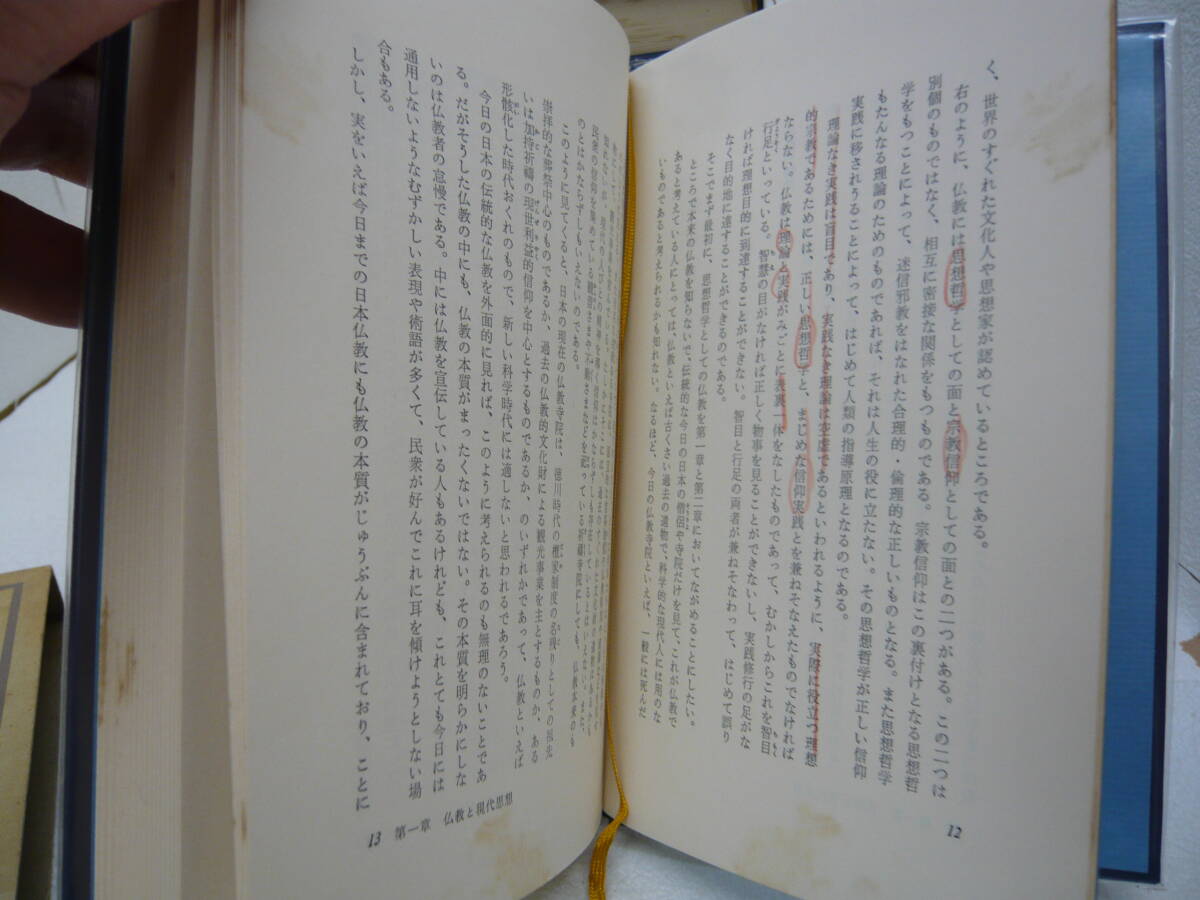 く、世界のすぐれた文化人や思想家が認めているところである。
右のように、仏教には思想哲学としての面と宗教信仰としての面との二つがある。この二つは
別個のものではなく、相互に密接な関係をもつものである。宗教信仰はこの裏付けとなる思想哲
学をもつことによって、迷信邪教をはなれた合理的・倫理的な正しいものとなる。また思想哲学
もたんなる理論のためのものであれば、それは人生の役に立たない。その思想哲学が正しい信仰
実践に移されうることによって、はじめて人類の指導原理となるのである。
理論なき実践は盲目であり、実践なき理論は空虚であるといわれるように、実際に役立つ理想
的宗教であるためには、正しい思想哲学と、まじめな信仰実践とを兼ねそなえたものでなければ
ならない。仏教は理論と実践がみごとに表裏一体をなしたものであって、むかしからこれを智目
行足といっている。智慧の目がなければ正しく物事を見ることができないし、実践修行の足がな
ければ理想目的に到達することができない。智目と行足の両者が兼ねそなわって、はじめて誤り
なく目的地に達することができるのである。
そこでまず最初に、思想哲学としての仏教を第一章と第二章においてながめることにしたい。
ところで本来の仏教を知らないで、伝統的な今日の日本の僧侶や寺院だけを見て、これが仏教で
あると考えている人にとっては、仏教といえば古くさい過去の遺物で、科学的な現代人には用のな
いものであると考えられるかも知れない。なるほど、今日の仏教寺院といえば、一般には死んだ
12
民衆の信仰を集めている
のとはかならずしもいえないのである。
このように見てくると、日本の現在の仏教寺院は、徳川時代の檀家制度の名残りとしての祖先
崇拝的な葬祭中心のものであるか、過去の仏教的文化財による観光事業を主とするものか、ある
いは加持祈禱の現世利益的信仰を中心とするものであるか、のいずれかであって、仏教といえば
形骸化した時代おくれのもので、新しい科学時代には適しないと思われるであろう。
今日の日本の伝統的な仏教を外面的に見れば、このように考えられるのも無理のないことであ
る。だがそうした仏教の中にも、仏教の本質がまったくないではない。その本質を明らかにしな
いのは仏教者の怠慢である。中には仏教を宣伝している人もあるけれども、これとても今日には
通用しないようなむずかしい表現や術語が多くて、民衆が好んでこれに耳を傾けようとしない場
合もある。
しかし、実をいえば今日までの日本仏教にも仏教の本質がじゅうぶんに含まれており、ことに
13 第一章 仏教と現代思想